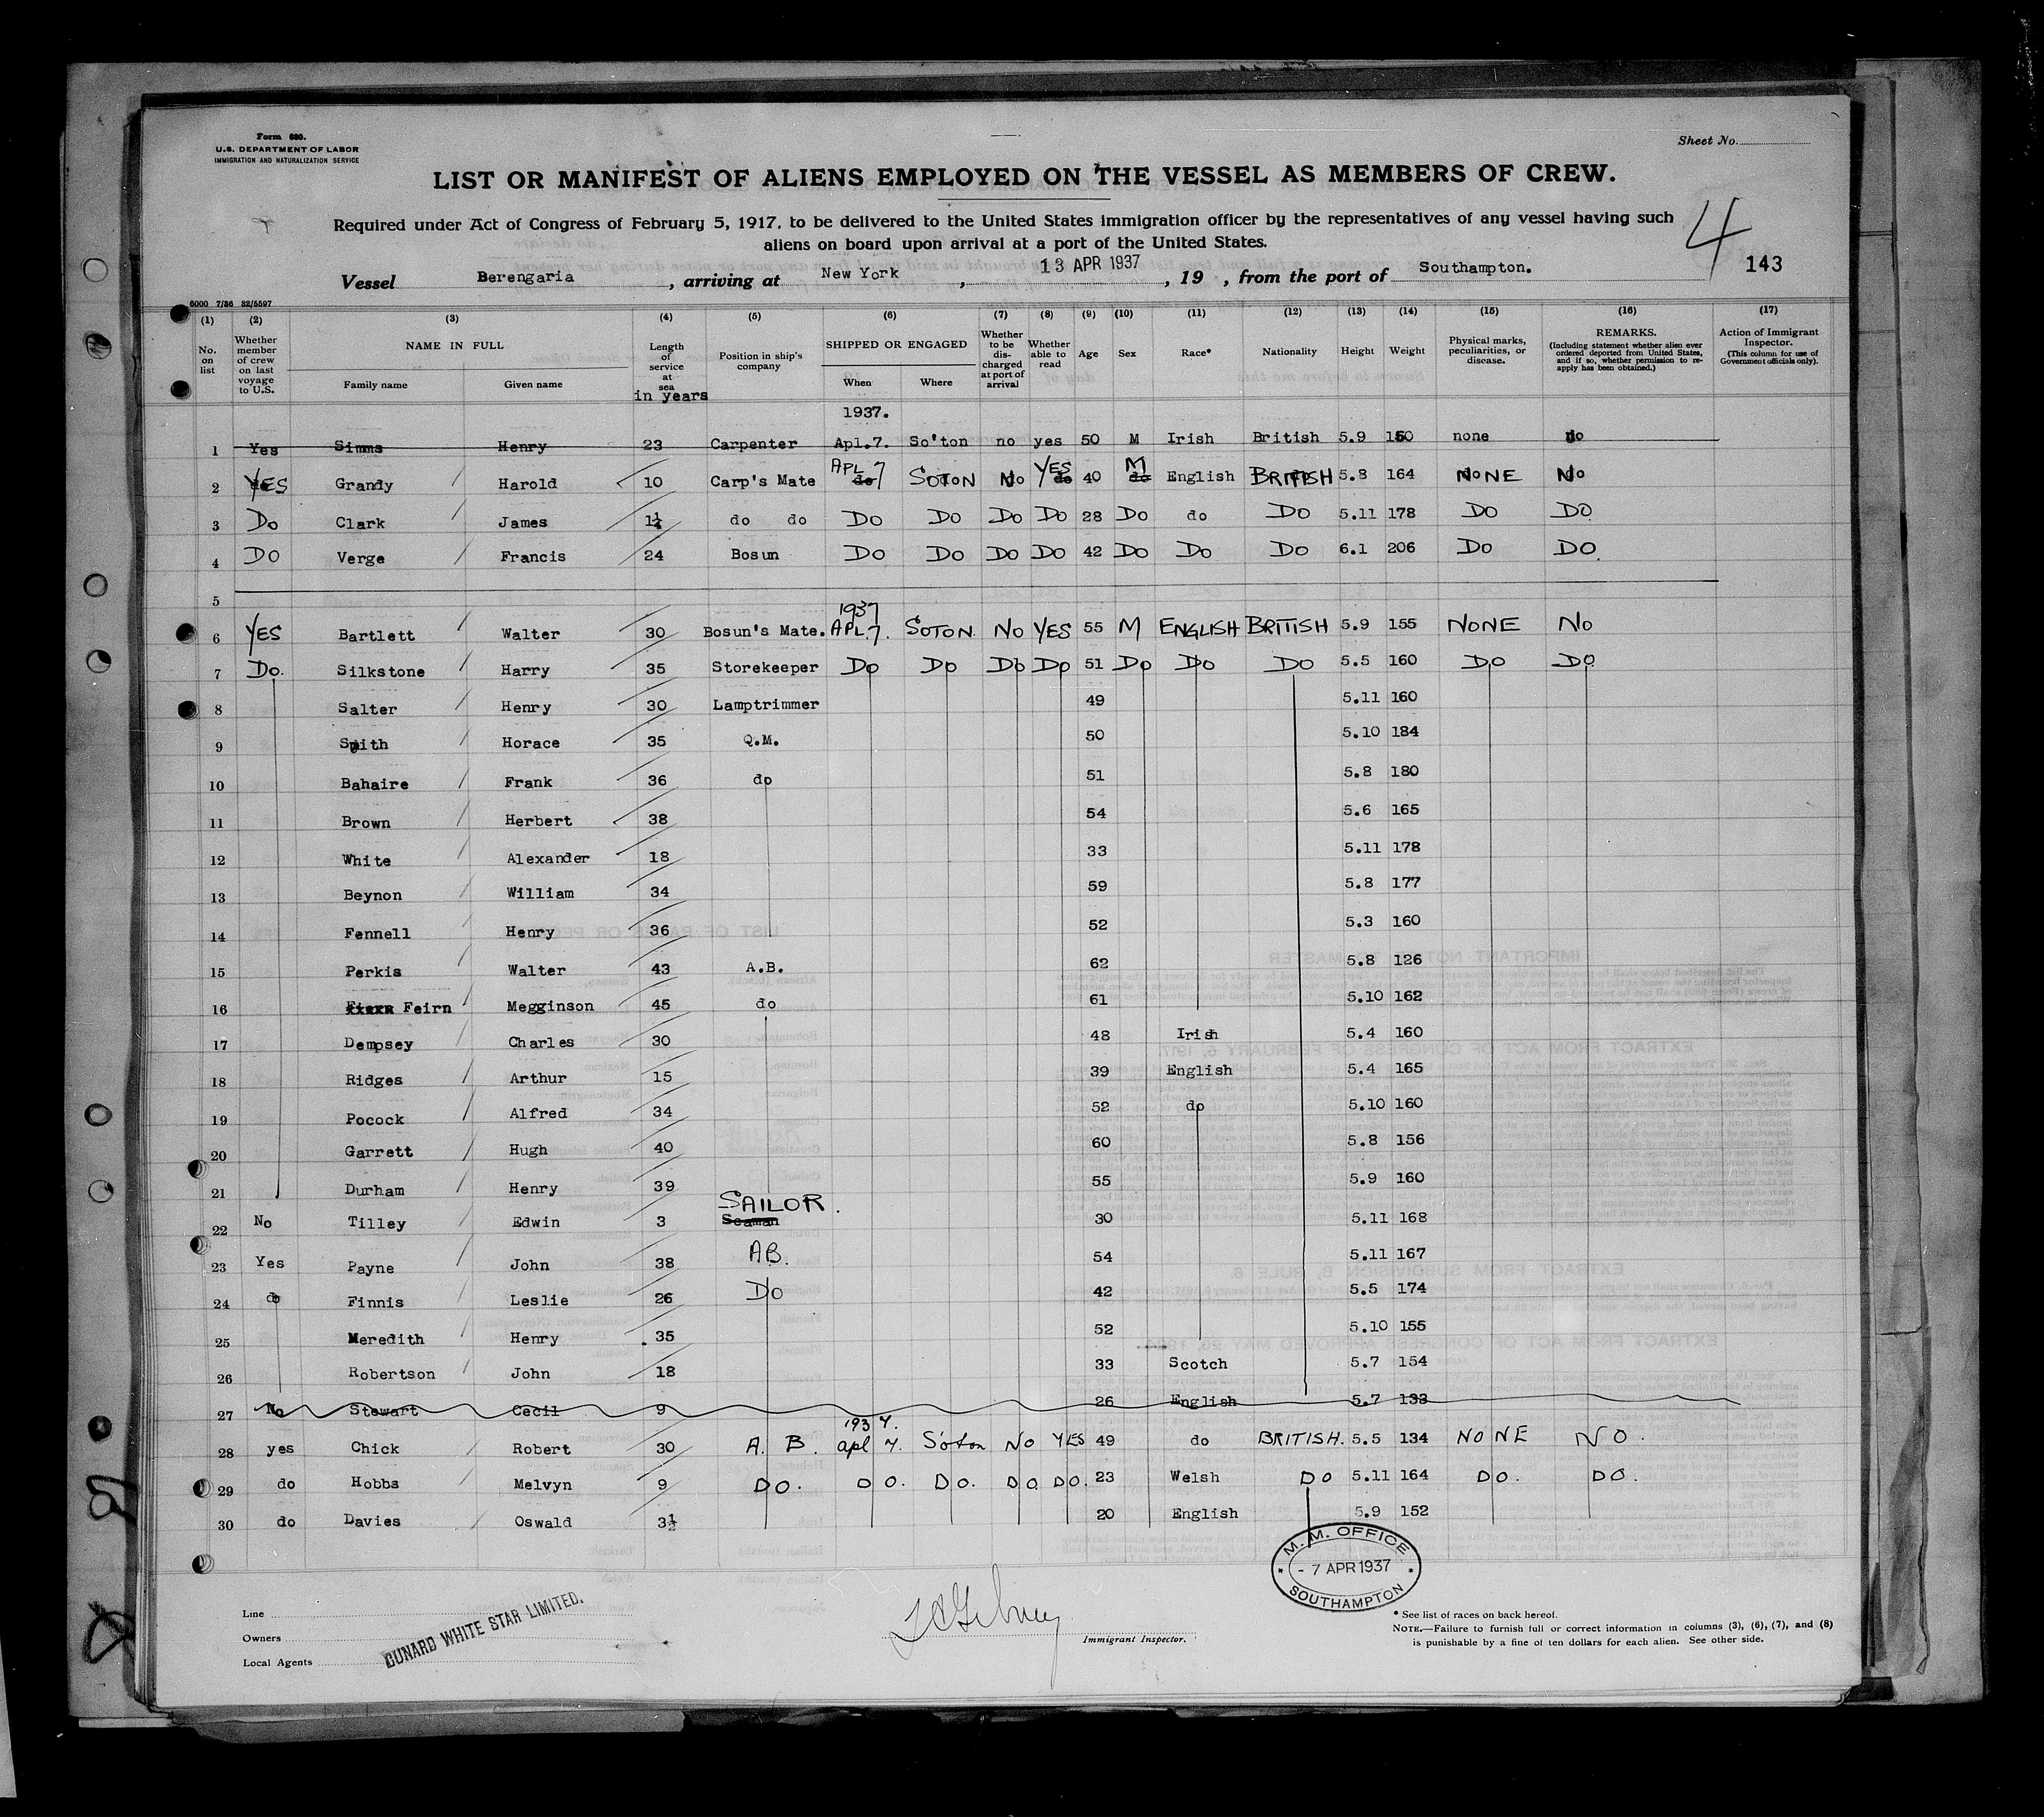 Form 680.
U.S. DEPARTMENT OF LABOR
IMMIGRATION AND NATURALIZATION SERVICE
Sheet No.
LIST OR MANIFEST OF ALIENS EMPLOYED ON THE VESSEL AS MEMBERS OF CREW.
Required under Act of Congress of February 5, 1917, to be delivered to the United States immigration officer by the representatives of any vessel having such
aliens on board upon arrival at a port of the United States.
4
143
Vessel Berengaria, arriving at New York, 13 APR 1937, 19 , from the port of Southampton.
6000 7/36 32/5597
(1) (2) (3) (4) (5) (6) (7) (8) (9) (10) (11) (12) (13) (14) (15) (16) (17)
No. on list
Whether member of crew on last voyage to U.S.
NAME IN FULL
Family name Given name
Length of service at sea in years
Position in ship's company
SHIPPED OR ENGAGED
When Where
Whether to be discharged at port of arrival
Whether able to read
Age
Sex
Race*
Nationality
Height
Weight
Physical marks, peculiarities, or disease.
REMARKS.
(Including statement whether alien ever ordered deported from United States, and if so, whether permission to re-apply has been obtained.)
Action of Immigrant Inspector.
(This column for use of Government officials only).
1937.
1 Yes Simms Henry 23 Carpenter Apl.7. So'ton no yes 50 M Irish British 5.9 150 none no
2 YES Grandy Harold 10 Carp's Mate APL 7 SOTON No YES 40 M English BRITISH 5.8 164 NONE No
3 Do Clark James 1¼ do do DO DO DO DO 28 DO do DO 5.11 178 DO DO
4 DO Verge Francis 24 Bosun DO DO DO DO 42 DO DO DO 6.1 206 DO DO.
5
1937
6 YES Bartlett Walter 30 Bosun's Mate. APL 7. SOTON. No YES 55 M ENGLISH BRITISH 5.9 155 NONE No
7 Do. Silkstone Harry 35 Storekeeper DO DO DO DO 51 DO DO DO 5.5 160 DO DO
8 Salter Henry 30 Lamptrimmer 49 5.11 160
9 Smith Horace 35 Q.M. 50 5.10 184
10 Bahaire Frank 36 do 51 5.8 180
11 Brown Herbert 38 54 5.6 165
12 White Alexander 18 33 5.11 178
13 Beynon William 34 59 5.8 177
14 Fennell Henry 36 52 5.3 160
15 Perkis Walter 43 A.B. 62 5.8 126
16 Feirn Megginson 45 do 61 5.10 162
17 Dempsey Charles 30 48 Irish 5.4 160
18 Ridges Arthur 15 39 English 5.4 165
19 Pocock Alfred 34 52 do 5.10 160
20 Garrett Hugh 40 60 5.8 156
21 Durham Henry 39 55 5.9 160
SAILOR.
22 No Tilley Edwin 3 Seaman 30 5.11 168
23 Yes Payne John 38 AB. 54 5.11 167
24 do Finnis Leslie 26 DO 42 5.5 174
25 Meredith Henry 35 52 5.10 155
26 Robertson John 18 33 Scotch 5.7 154
27 No Stewart Cecil 9 26 English 5.7 133
1937.
28 yes Chick Robert 30 A. B. apl 7. S'oton NO YES 49 do BRITISH. 5.5 134 NONE NO.
29 do Hobbs Melvyn 9 DO. DO. DO. DO DO. 23 Welsh DO 5.11 164 DO. DO.
30 do Davies Oswald 3½ 20 English 5.9 152
M. M. OFFICE
- 7 APR 1937
SOUTHAMPTON
Line
Owners
Local Agents
CUNARD WHITE STAR LIMITED.
Immigrant Inspector.
* See list of races on back hereof.
NOTE.—Failure to furnish full or correct information in columns (3), (6), (7), and (8)
is punishable by a fine of ten dollars for each alien. See other side.